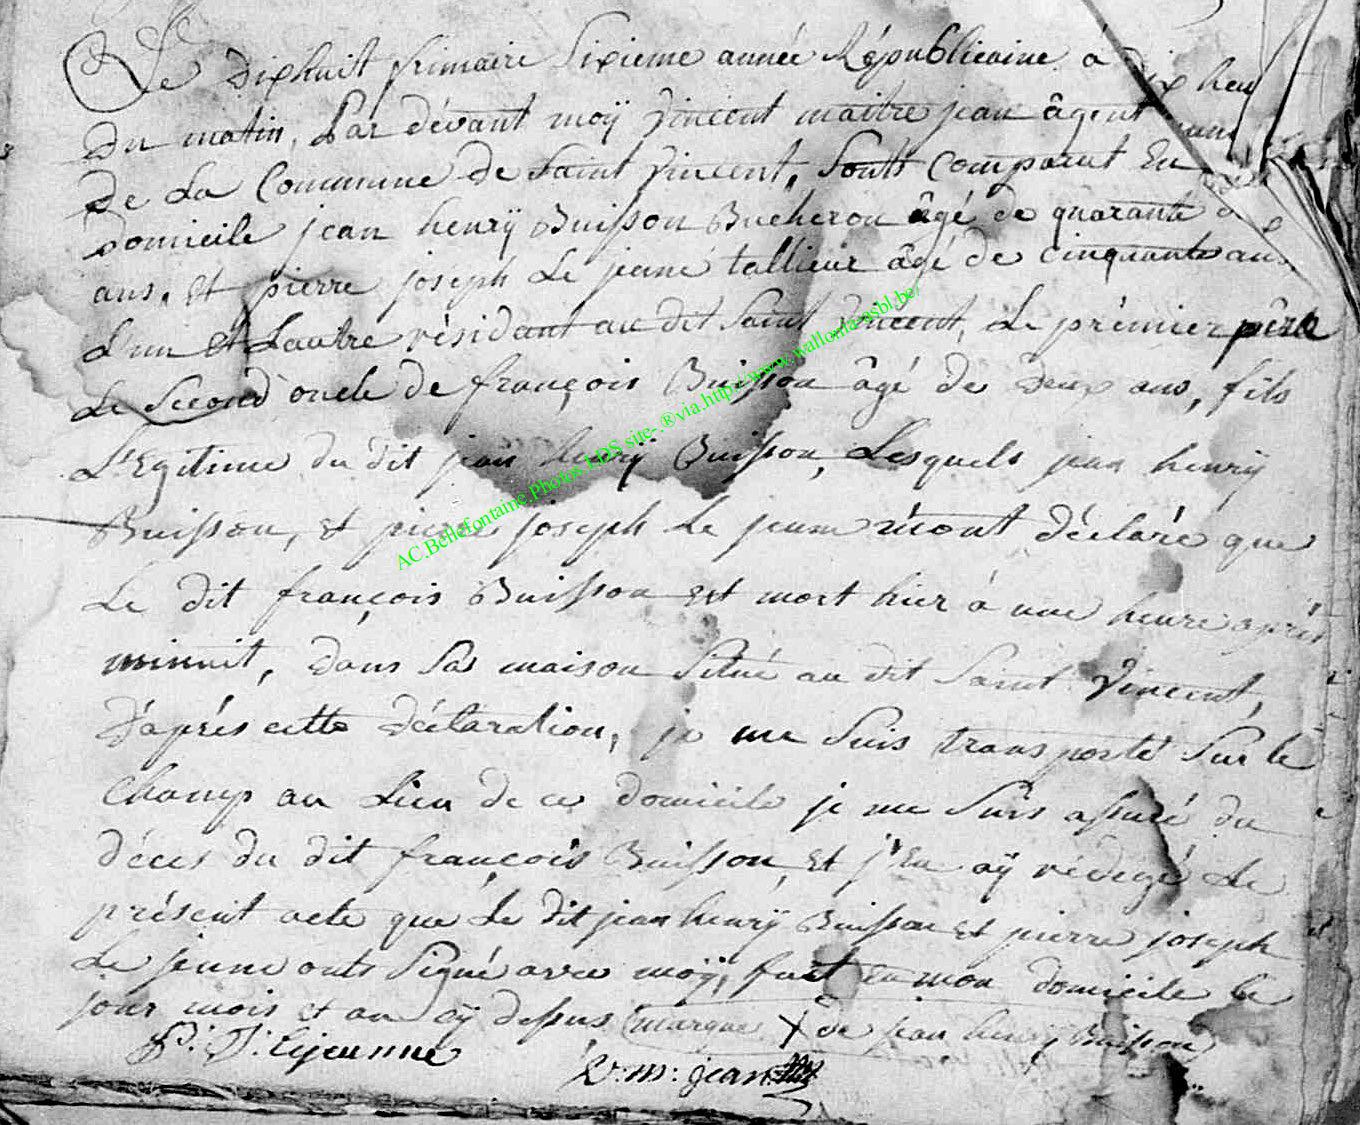 Le Dixhuit frimaire Sixieme année Républicaine a dix heu
Du matin, Par dévant moÿ Vincent maitre jean âgent
De La Commune de Saint Vincent, Sonts Comparut En
Domicile jean henrÿ Buisson Bucheron âgé de quarante
ans, Et pierre joseph Le jeune tallieur âgé de cinquante ans
L'un Et Lautre résidant au dit Saint Vincent, Le prémier pére
Le Sécond oncle de françois Buisson âgé de Deux ans, fils
L'Egitime du dit jean henrÿ Buisson, Lesquels jean henrÿ
Buisson, et pierre joseph Le jeune m'ont déclaré que
Le dit françois Buisson est mort hier à une heure aprés
minuit, dans Sas maison Situé au dit Saint Vincent,
D'aprés cette déclaration, je me Suis transporté Sur le
Champ au Lieu de ce domicile je me Suis assuré du
Déces du dit françois Buisson, Et j'En aÿ rédegé Le
présent acte que Le dit jean henrÿ Buisson et pierre joseph
Le jeune onts Signé avec moÿ, fait en mon domicile le
jour mois et an aÿ dessus (marque X de jean henrÿ Buisson)
P. J. Lejeunne
V: m: jean
AC.Bellefontaine.Photos.LDS.site-.®via.http://www.wallonia-asbl.be/